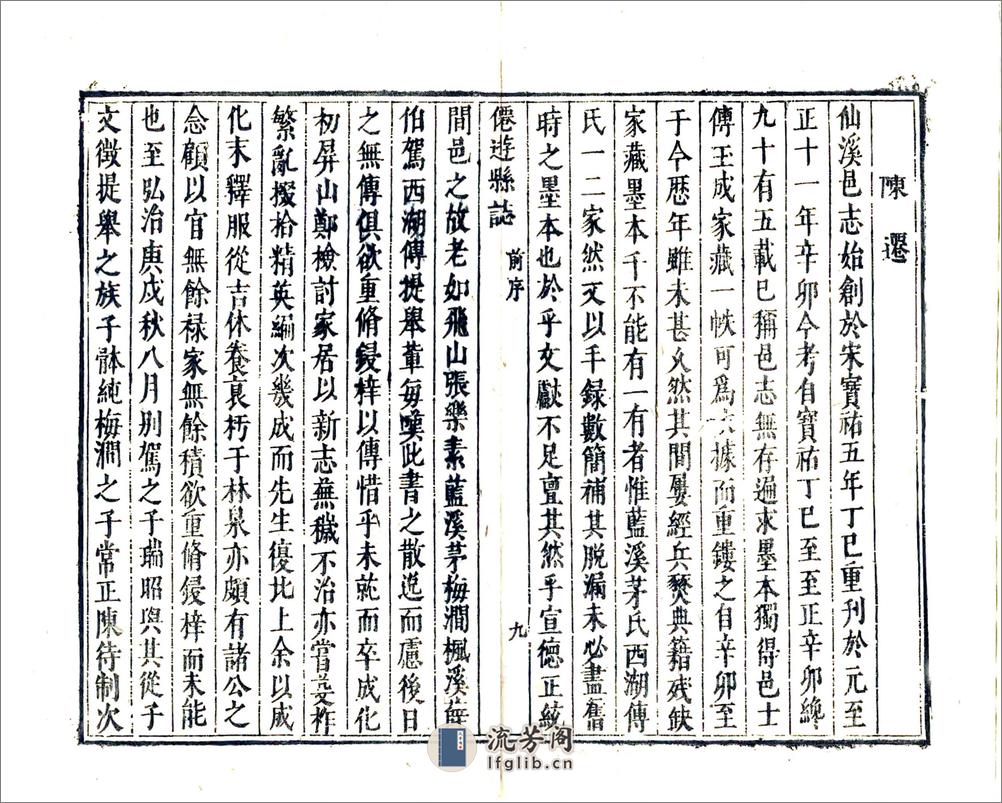 陳遷
仙溪邑志始創於宋寶祐五年丁巳重刊於元至
正十一年辛卯今考自寶祐丁巳至至正辛卯纔
九十有五載已稱邑志無存遍求墨本獨得邑士
傅玉成家藏一帙可爲據而重鏤之自辛卯至
于今歴年雖未甚乆然其間屢經兵燹典籍殘缺
家藏墨本千不能有一有者惟藍溪茅氏西湖傅
氏一二家然又以手録數簡補其脱漏未必盡舊
時之墨本也於乎文獻不足亶其然乎宣德正統
僊遊縣誌 前序 九
間邑之故老如飛山張樂素藍溪茅梅澗楓溪薛
伯駕西湖傅提舉軰每嘆此書之散逸而慮後日
之無傳俱欲重脩鋟梓以傳惜乎未就而卒成化
初屏山鄭檢討家居以新志蕪穢不治亦嘗芟柞
繁亂掇拾精英編次幾成而先生復北上余以成
化末釋服從吉休養衰朽于林泉亦頗有諸公之
念顧以官無餘禄家無餘積欲重脩鋟梓而未能
也至弘治庚戌秋八月别駕之子瑞昭與其從子
文徵提舉之族子體純梅澗之子常正陳待制次
流芳阁
lfglib.cn